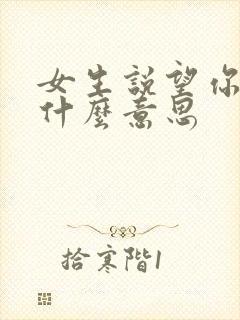 女生説望你
什麼意思
拾寒階1